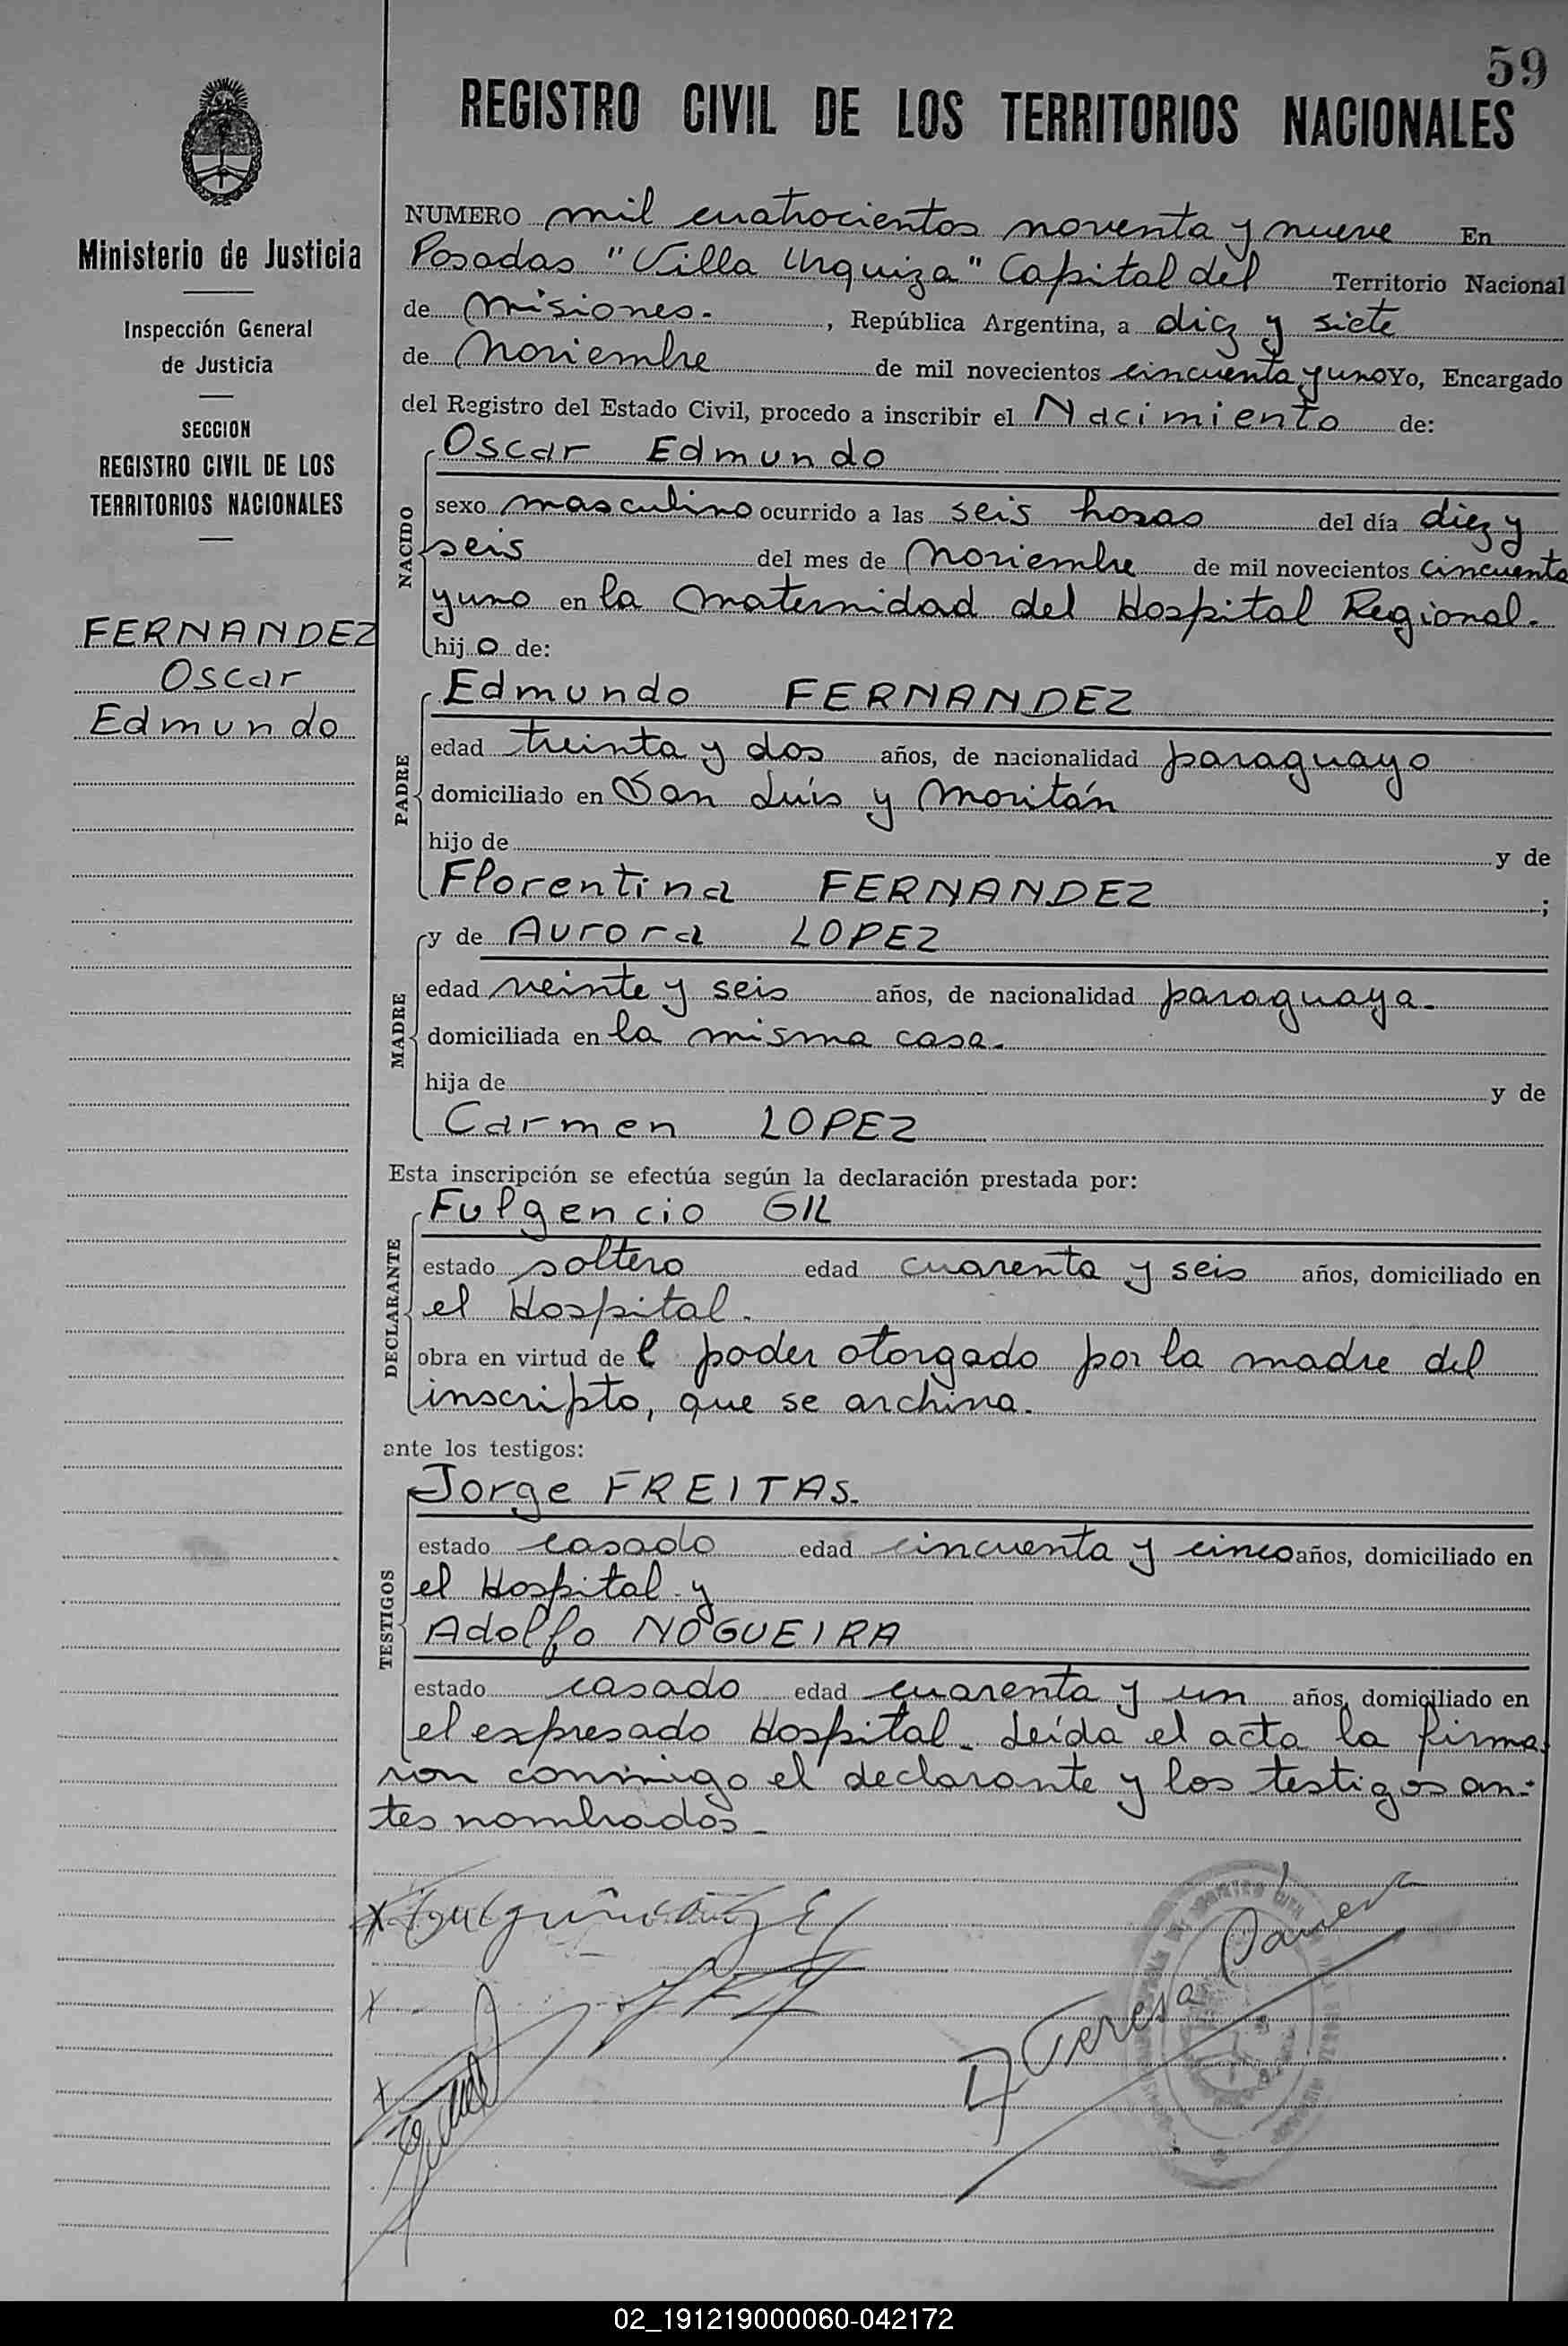 59
REGISTRO CIVIL DE LOS TERRITORIOS NACIONALES
Ministerio de Justicia
Inspección General
de Justicia
SECCION
REGISTRO CIVIL DE LOS
TERRITORIOS NACIONALES
FERNANDEZ
Oscar
Edmundo
NUMERO mil cuatrocientos noventa y nueve En
Posadas "Villa Urquiza" Capital del Territorio Nacional
de Misiones.- , República Argentina, a diez y siete
de Noviembre de mil novecientos cincuenta y uno Yo, Encargado
del Registro del Estado Civil, procedo a inscribir el Nacimiento de:
NACIDO
Oscar Edmundo
sexo masculino ocurrido a las seis horas del día diez y
seis del mes de Noviembre de mil novecientos cincuenta
y uno en la Maternidad del Hospital Regional.-
hijo de:
PADRE
Edmundo FERNANDEZ
edad treinta y dos años, de nacionalidad paraguayo
domiciliado en San Luis y Moritán
hijo de y de
Florentina FERNANDEZ ;
MADRE
y de Aurora LOPEZ
edad veinte y seis años, de nacionalidad paraguaya.-
domiciliada en la misma casa.-
hija de y de
Carmen LOPEZ
Esta inscripción se efectúa según la declaración prestada por:
DECLARANTE
Fulgencio GIL
estado soltero edad cuarenta y seis años, domiciliado en
el Hospital.-
obra en virtud de l poder otorgado por la madre del
inscripto, que se archiva.-
ante los testigos:
TESTIGOS
Jorge FREITAS.-
estado casado edad cincuenta y cinco años, domiciliado en
el Hospital y
Adolfo NOGUEIRA
estado casado edad cuarenta y un años, domiciliado en
el expresado Hospital.- Leída el acta la firma
ron conmigo el declarante y los testigos an-
tes nombrados.-
Teresa
02_191219000060-042172